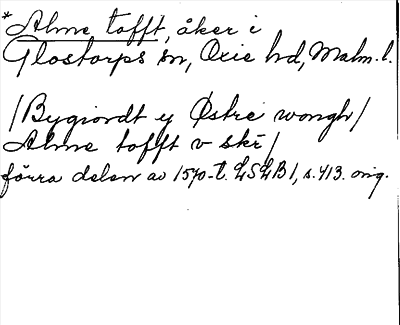 *Alme tofft, åker i
Glostorps sn, Oxie hd, Malm. l.
/Bygiordt ey Østre wongh/
Alme tofft v skē/
förra delen av 1570-t. LSLB 1, s. 413. orig.